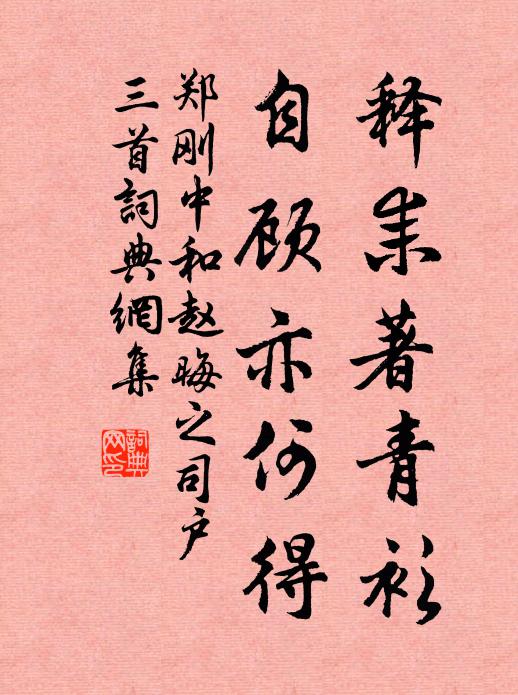 释耒著青衫
自顾亦何得
郑刚中和赵晦之司户
三首詞典網集
詞典網印